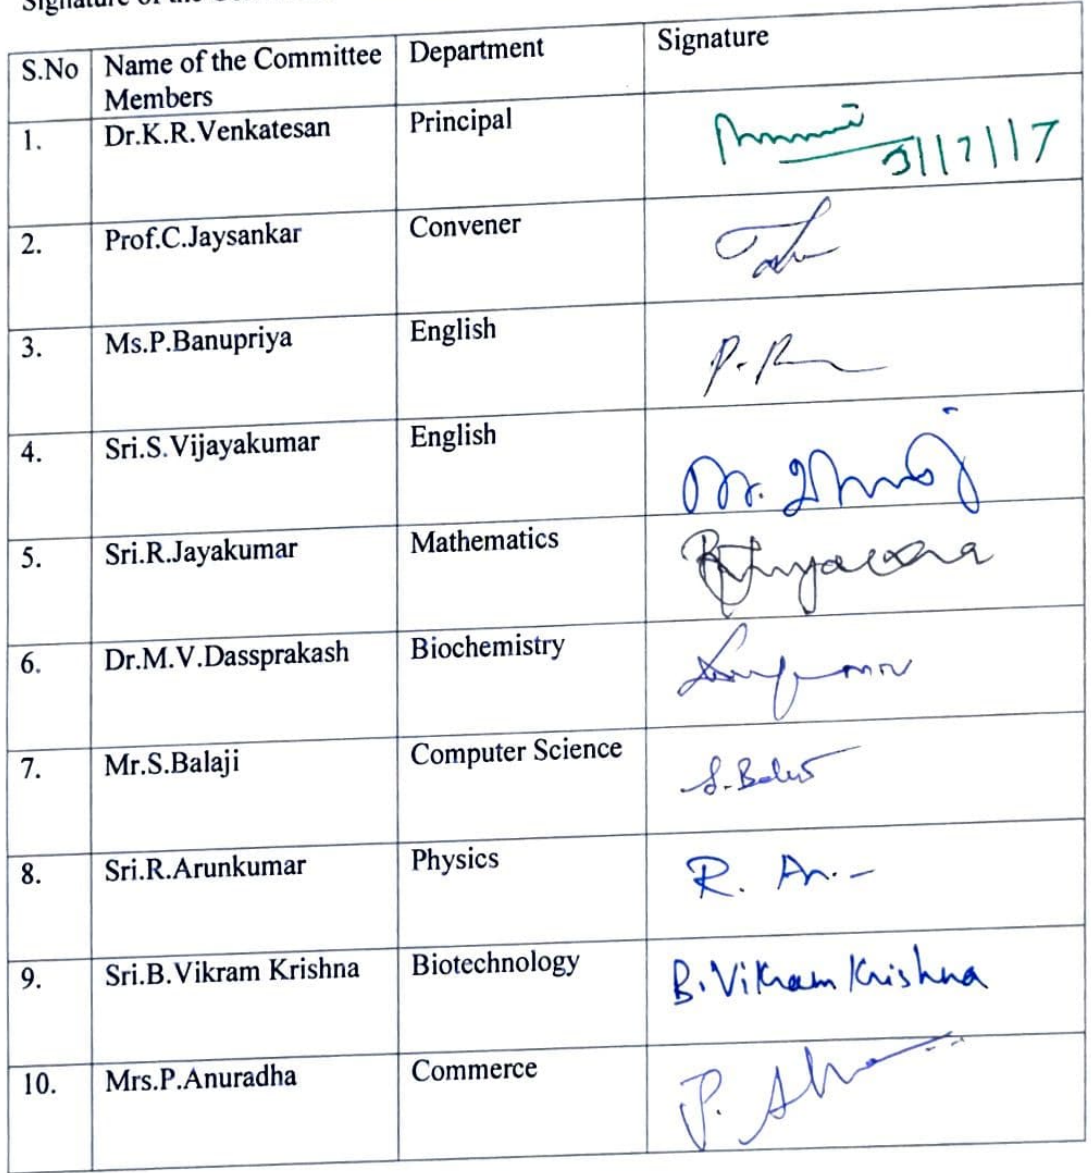 S.No Name of the Committee Members Department Signature
1. Dr.K.R.Venkatesan Principal
2. Prof.C.Jaysankar Convener
3. Ms.P.Banupriya English
4. Sri.S.Vijayakumar English
5. Sri.R.Jayakumar Mathematics
6. Dr.M.V.Dassprakash Biochemistry
7. Mr.S.Balaji Computer Science
8. Sri.R.Arunkumar Physics
9. Sri.B.Vikram Krishna Biotechnology B.Vikram Krishna
10. Mrs.P.Anuradha Commerce